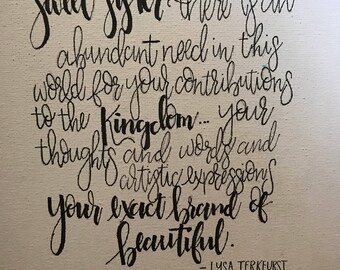 sweet sister there is an
abundant need in this
world for your contributions
to the Kingdom... your
thoughts and words and
artistic expressions
your exact brand of
beautiful.
- LYSA TERKEURST